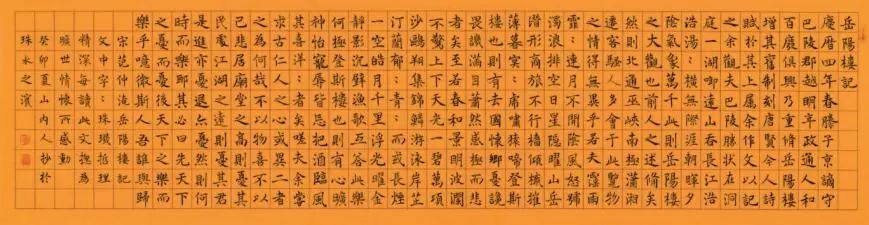 岳陽樓記
慶曆四年春滕子京謫守
巴陵郡越明年政通人和
百廢俱興乃重脩岳陽樓
增其舊制刻唐賢今人詩
賦於其上属余作文以記
之余觀夫巴陵勝狀在洞
庭一湖啣遠山吞長江浩
浩湯：橫無際涯朝暉夕
陰氣象萬千此則岳陽樓
之大觀也前人之述備矣
然則北通巫峽南極瀟湘
遷客騷人多會于此覽物
之情得無異乎若夫霪雨
霏：連月不開陰風怒號
濁浪排空日星隱曜山岳
潛形商旅不行檣傾檝摧
薄暮冥：虎嘯猿啼登斯
樓也則有去國懷鄉憂讒
畏譏滿目蕭然感極而悲
者矣至若春和景明波瀾
不驚上下天光一碧萬頃
沙鷗翔集錦鱗游泳岸芷
汀蘭郁：青：而或長煙
一空皓月千里浮光曜金
靜影沉璧漁歌互答此樂
何極登斯樓也則有心曠
神怡寵辱皆忘把酒臨風
其喜洋：者矣嗟夫余嘗
求古仁人之心或異二者
之為何哉不以物喜不以
已悲居廟堂之高則憂其
民處江湖之遠則憂其君
是進亦憂退亦憂然則何
時而樂耶其必曰先天下
之憂而憂後天下之樂而
樂乎噫微斯人吾誰與歸
宋范仲淹岳陽樓記
文中字：珠璣哲理
精深每讀此文總為
曠世情懷所感動
癸卯夏山內人抄於
珠水之濱